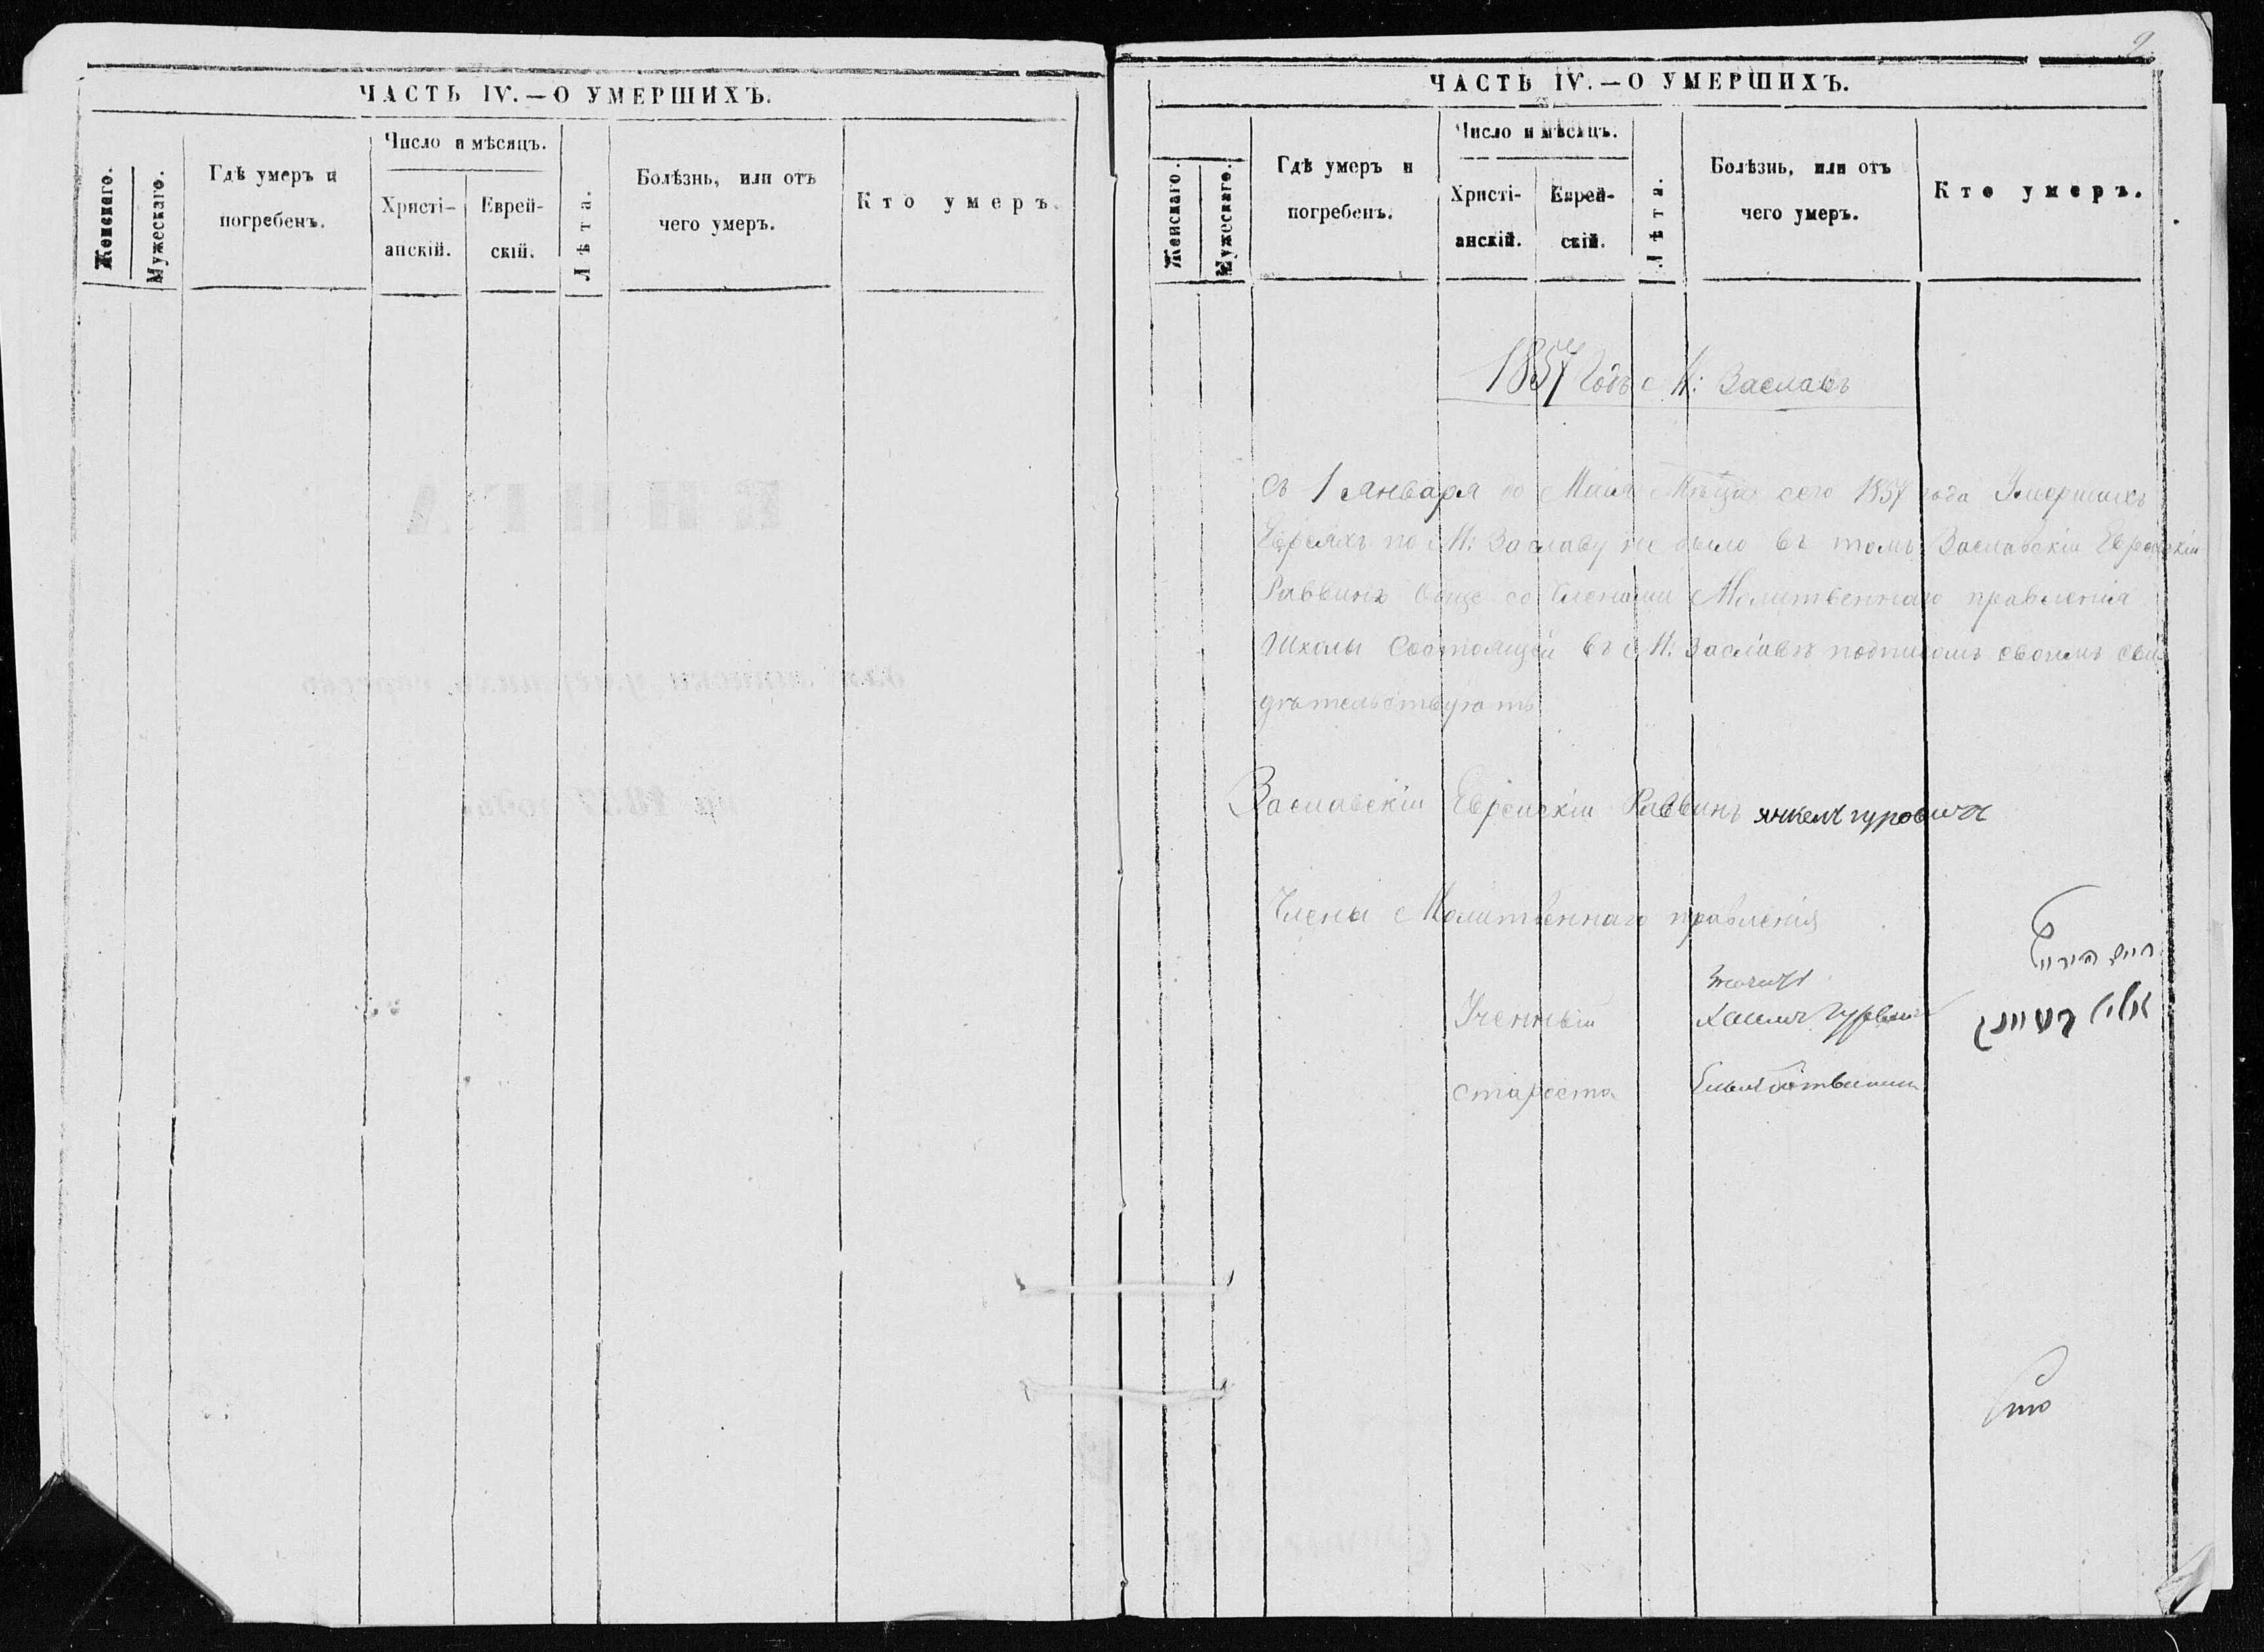 ЧАСТЬ IV.—О УМЕРШИХЪ.
Женскаго.
Мужескаго.
Гдѣ умеръ и
погребенъ.
Число и мѣсяцъ.
Христі-
анскій.
Еврей-
скій.
Лѣта.
Болѣзнь, или отъ
чего умеръ.
Кто умеръ.
2
ЧАСТЬ IV.—О УМЕРШИХЪ.
Женскаго.
Мужескаго.
Гдѣ умеръ и
погребенъ.
Число и мѣсяцъ.
Христі-
анскій.
Еврей-
скій.
Лѣта.
Болѣзнь, или отъ
чего умеръ.
Кто умеръ.
1857 Годъ М: Заславъ
Съ 1 Января по Маія Мѣсца сего 1857 года Умершихъ
Евреяхъ по М: Заславу не было въ томъ Заславскіи Еврейскіи
Раввинъ обще со Членами Молитвенного правленія
Школы Состоящей въ М: Заславѣ подписомъ своимъ сви
дѣтельствуютъ
Заславскіи Еврейскіи Раввинъ янкель гуровичъ
Члены Молитвенного правленія
Ученныи
староста